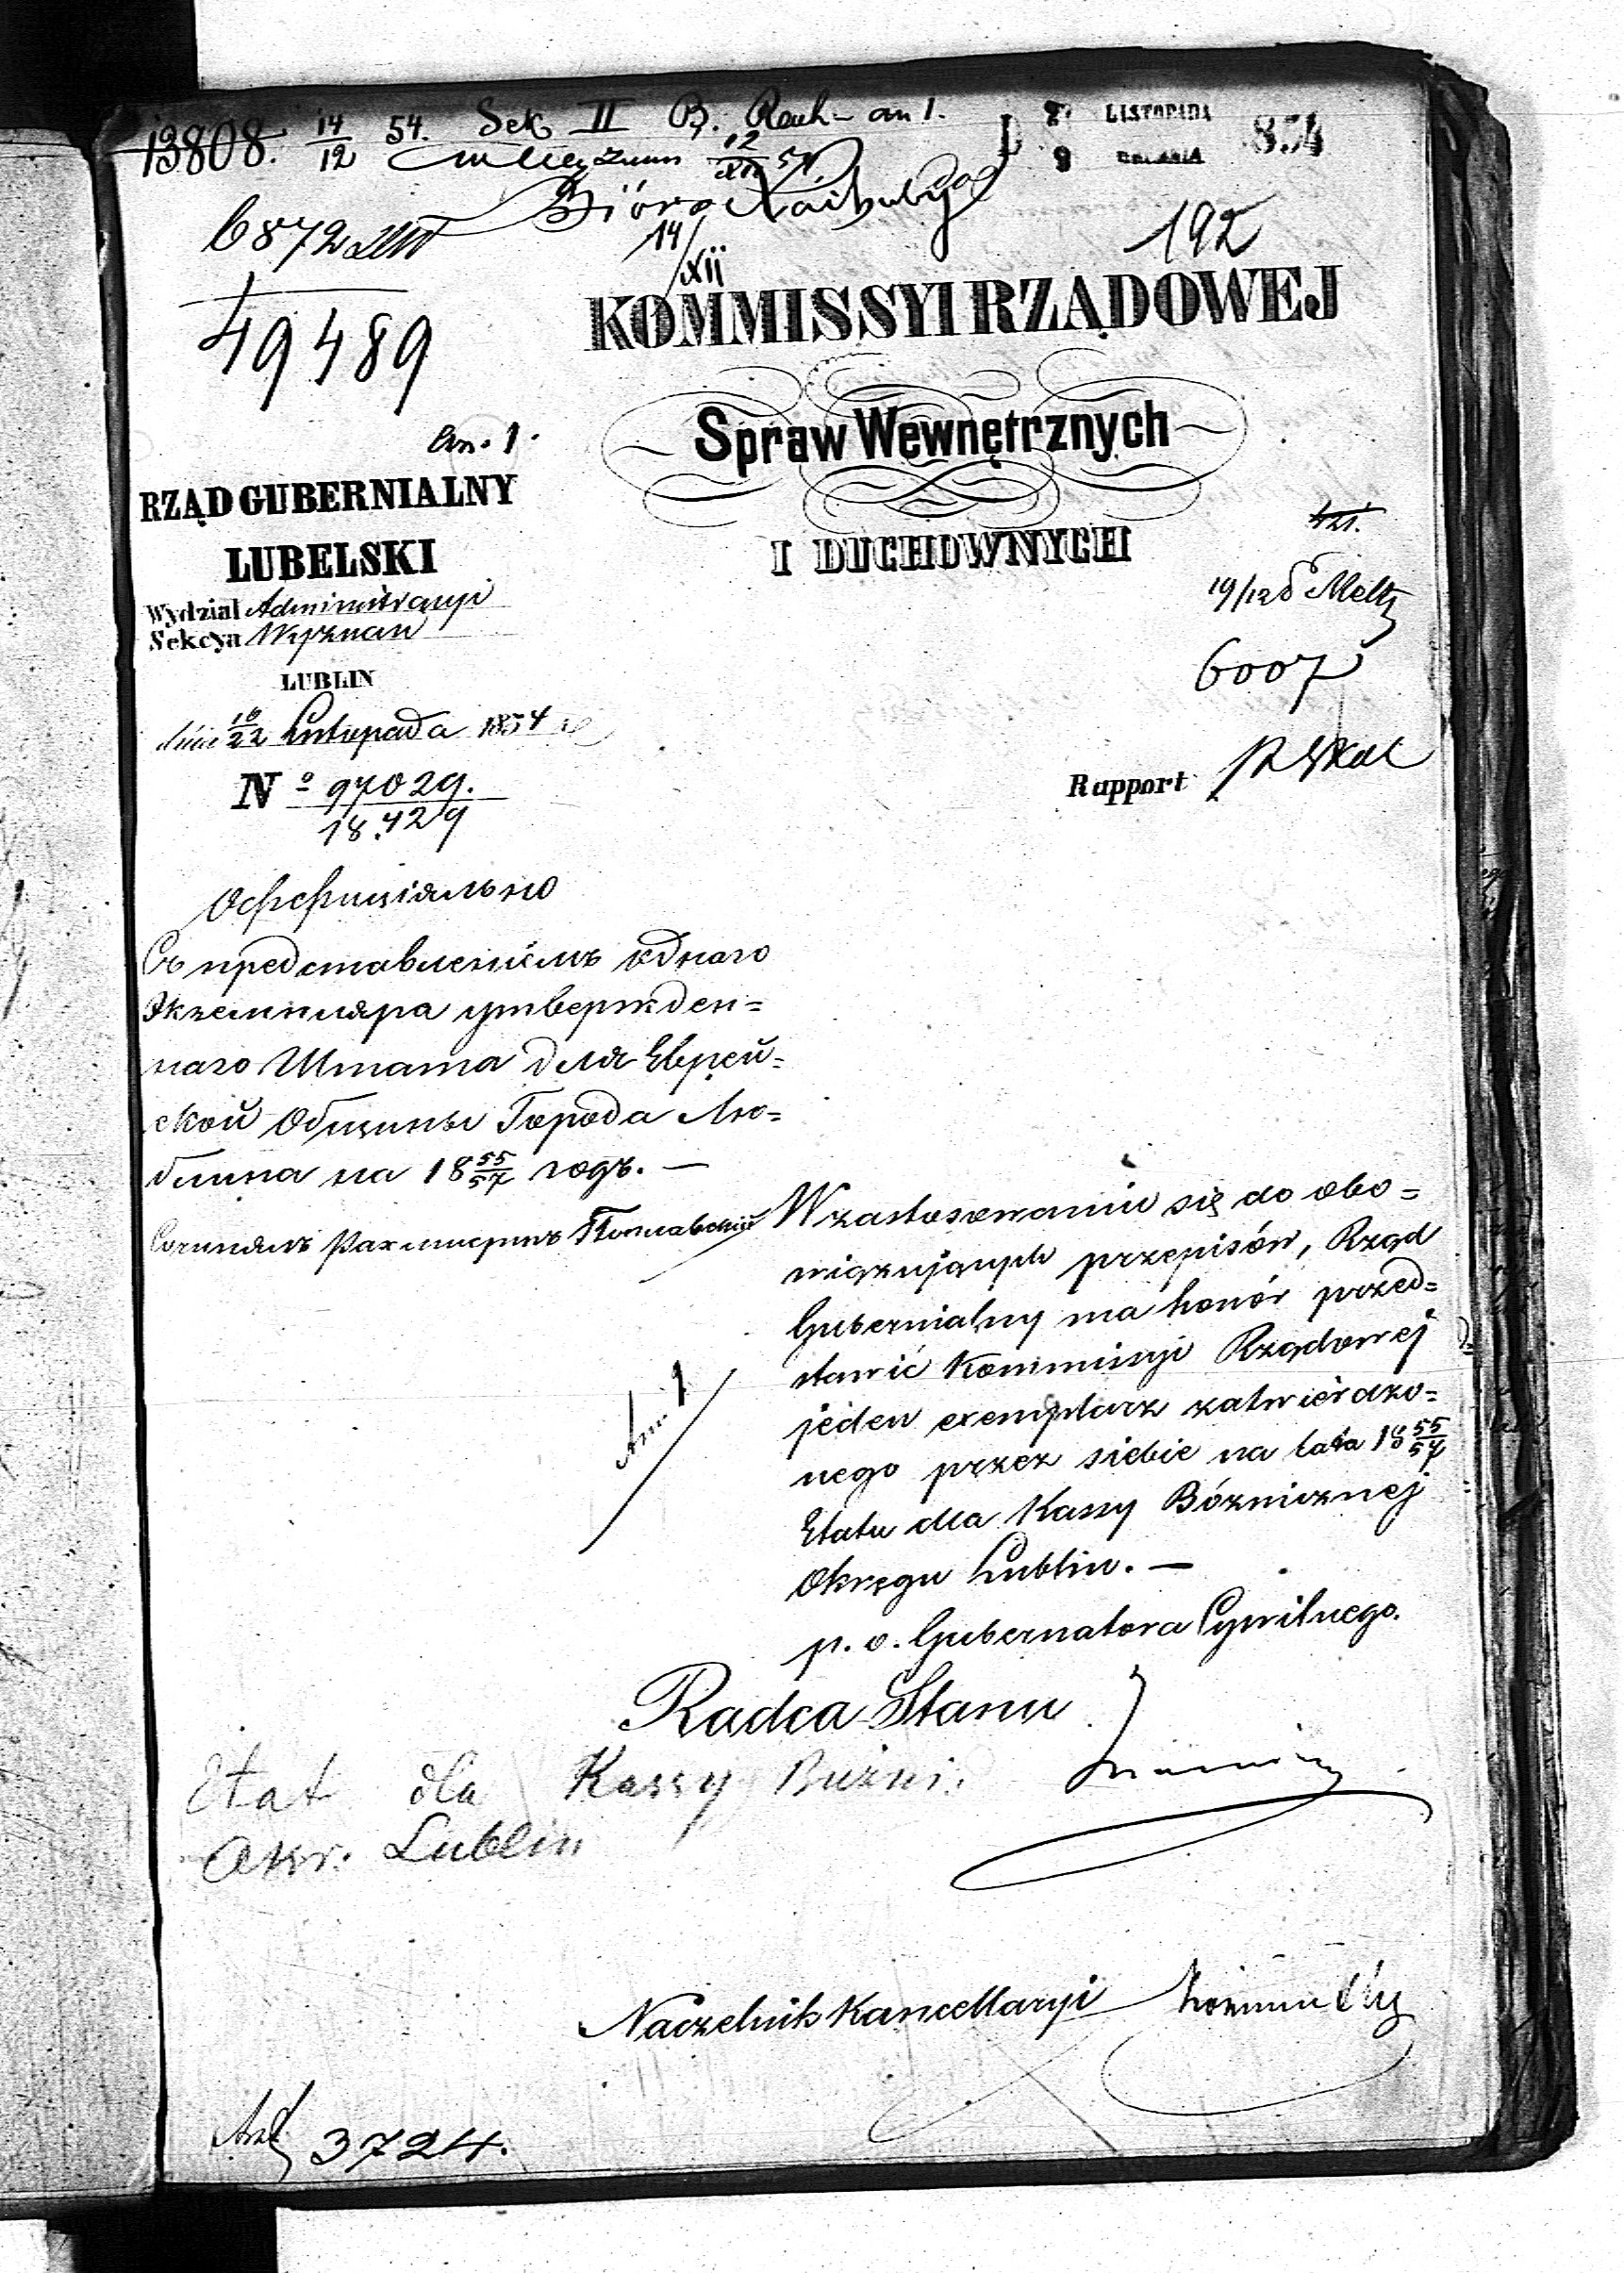 13808. 14/12 54. Sek II B. Rach- an 1.
12/XII 54.
D 27 LISTOPADA 854
9 GRUDNIA
Bióro
14/XII
6872
49489
192
KOMMISSYI RZĄDOWEJ
Spraw Wewnętrznych
I DUCHOWNYCH
an. 1.
RZĄD GUBERNIALNY
LUBELSKI
Wydział Administracyi
Sekcya Wyznań
LUBLIN
dnia 10/22 Listopada 1854 r
Nº 97029.
18.429
421.
19/12
6007
Rapport
Оффиціяльно
Съ представленіемъ однаго
Экземпляра утвержден=
наго Штата для Еврей=
ской Общины Города Лю=
блина на 18 55/57 годъ. —
W zastosowaniu się do obo=
wiązujących przepisów, Rząd
Gubernialny ma honór przed=
stawić Kommissyi Rządowej
jeden exemplarz zatwierdzo=
nego przez siebie na lata 18 55/57
Etatu dla Kassy Bóżnicznej
Okręgu Lublin. —
Ann 1
p. o. Gubernatora Cywilnego.
Radca Stanu
Etat dla Kassy Bużni.
Okr. Lublin
Naczelnik Kancellaryi
3724.